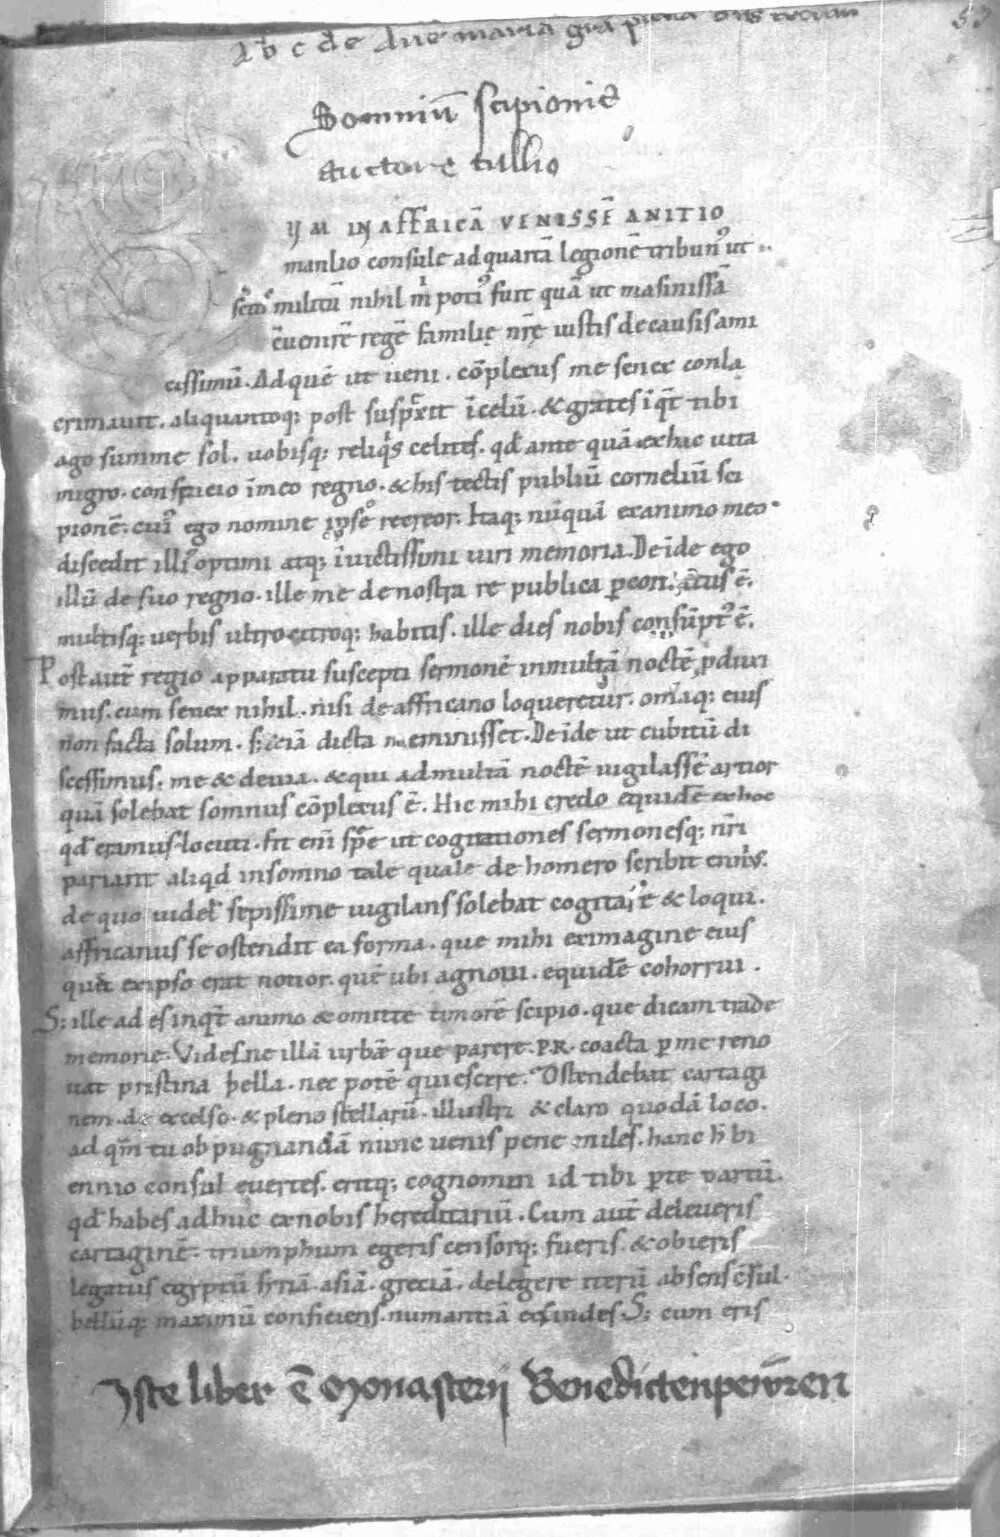 A b c d e Aue maria gr̃a plena dn̄s tecum
53
Somniū scipionis
auctore tullio
ỤM IN AFFRICĀ VENISSĒ ANITIO
manlio consule ad quartā legionē tribunꝰ ut
militū nihil m̍ potiꝰ fuit quā ut masinissā
cōuenirē regē familię nr̄ę iustis de causis ami
cissimū. Ad quē ut ueni. cōplexus me senex conla
crimauit. aliquantoq; post suspexit ī celū. & grates īqͥt tibi
ago summe sol. uobisq; reliqͥs celites. qđ ante quā ex hac uita
migro. conspicio ī meo regno. & his tectis publiū corneliū sci
pionē. cuiꝰ ego nomine ipse recreor. Itaq; nūquā ex animo meo
discedit illiꝰ optimi atq; īuictissimi uiri memoria. De īde ego
illū de suo regno. ille me de nostra re publica ꝑcontatus ē.
multisq; uerbis ultro citroq; habitis. ille dies nobis consūptꝰ ē.
Post aut̄ regio apparatu suscepti sermonē in multā noctē ꝓduxi
mus. cum senex nihil. nisi de affricano loqueretur. omīaq; eius
non facta solum. s; & iā dicta meminisset. De īde ut cubitū di
scessimus. me & de uia. & qui ad multā noctē uigilassē artior
quā solebat somnus cōplexus ē. Hic mihi credo equidē ex hoc
qđ eramus locuti. fit eni sꝑe ut cogitationes sermonesq; nr̄i
pariant aliqđ in somno tale quale de homero scribit enniꝰ.
de quo uidel̄ sepissime uigilans solebat cogitare & loqui.
affricanus se ostendit ea forma. que mihi ex imagine eius
quā ex ipso erat notior. quē ubi agnoui. equidē cohorrui.
S; ille ades inqͥt animo & omitte timorē scipio. que dicam trade
memorie. Vides ne illā urbē que parere. P.R. coacta ꝑ me reno
uat pristina bella. nec potē quiescere. Ostendebat cartagi
nem. de excelso. & pleno stellarū. illustri & claro quodā loco.
ad qm̄ tu obpugnandā nunc uenis pene miles. hanc h̄ bi
ennio consul euertes. eritq; cognomen id tibi ꝑ te partū.
qđ habes adhuc ex nobis hereditariū. Cum aut̄ deleueris
cartaginē. triumphum egeris censorq; fueris. & obieris
legatus egyptū siriā. asiā. greciā. delegere iterū absens cōsul.
bellūq; maximū conficiens. numantiā exscindes. S; cum eris
Iste liber ē Monasterij Benedictenpewren